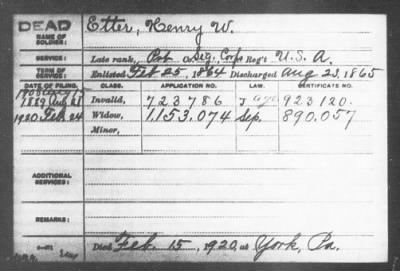 DEAD
NAME OF SOLDIER: Etter, Henry W.
SERVICE: Late rank, Pvt Co. Sig. Corps Reg't U. S. A.
TERM OF SERVICE: Enlisted Feb 25, 1864 Discharged Aug 23, 1865
DATE OF FILING. CLASS. APPLICATION NO. LAW. CERTIFICATE NO.
1889 Aug Invalid, 723786 923120.
1920 Feb 24 Widow, 1.153.074 Sep. 890.057
Minor,
ADDITIONAL SERVICES:
REMARKS:
Died Feb. 15, 1920, at York, Pa.